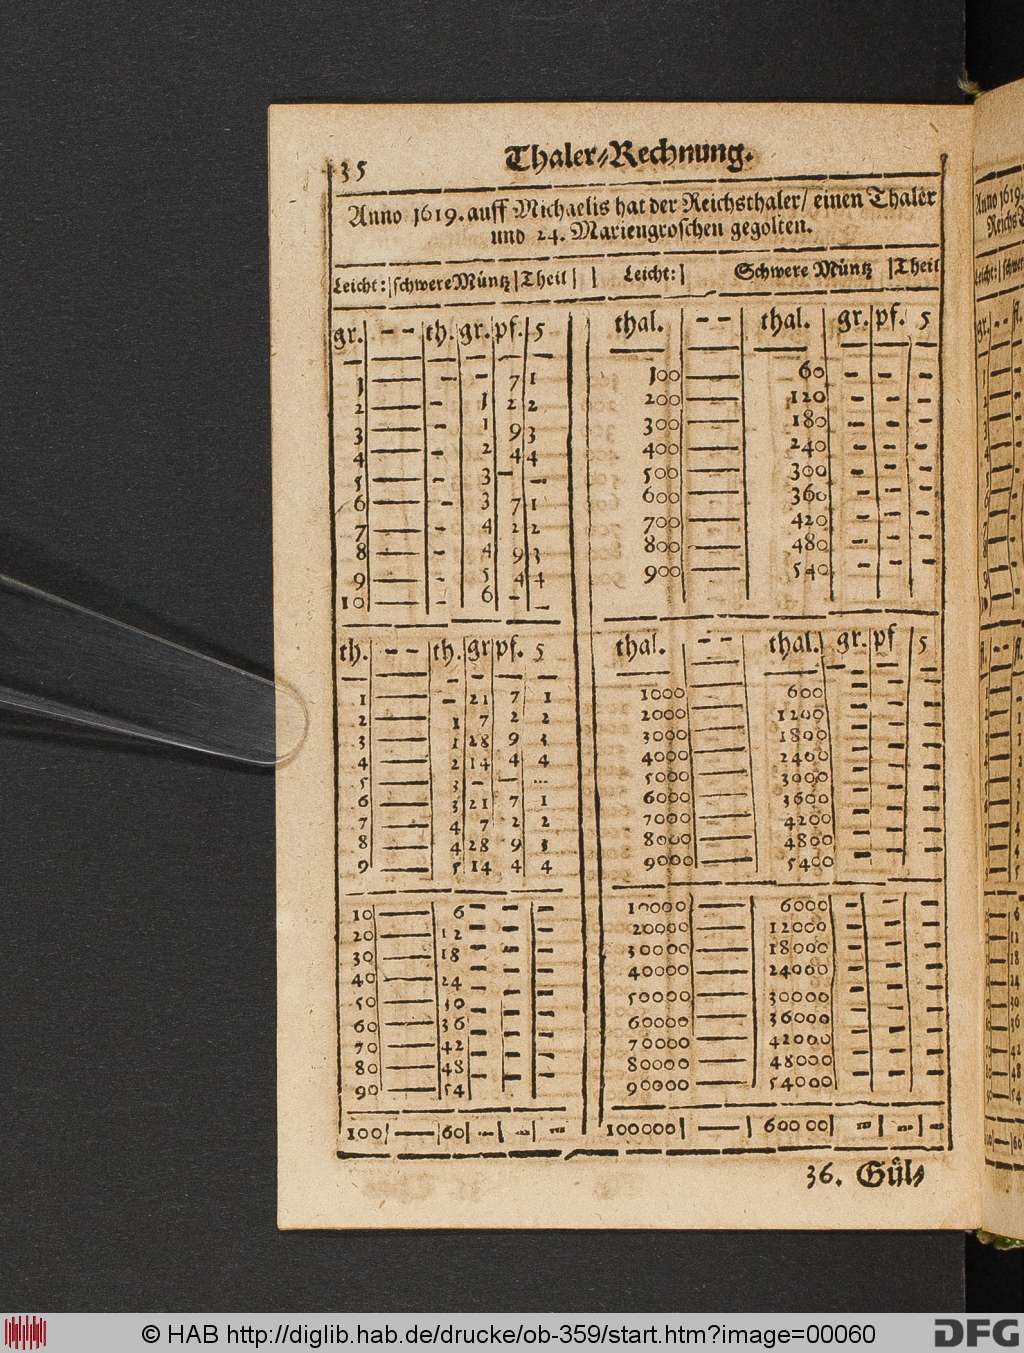 35 Thaler-Rechnung.
Anno 1619. auff Michaelis hat der Reichsthaler/ einen Thaler
und 24. Mariengroschen gegolten.
Leicht: | schwere Müntz | Theil | | Leicht: | Schwere Müntz | Theil
gr. | - - | th. | gr. | pf. | 5
1 — - - 7 1
2 — - 1 2 2
3 — - 1 9 3
4 — - 2 4 4
5 — 3 - -
6 — - 3 7 1
7 — - 4 2 2
8 — - 4 9 3
9 — - 5 4 4
10 — - 6 - -
th. | - - | th. | gr | pf. | 5
1 — - 21 7 1
2 — 1 7 2 2
3 — 1 28 9 3
4 — 2 14 4 4
5 — 3 - - ...
6 — 3 21 7 1
7 — 4 7 2 2
8 — 4 28 9 3
9 — 5 14 4 4
10 — 6 - - -
20 — 12 - - -
30 — 18 - - -
40 — 24 - - -
50 — 30 - - -
60 — 36 - - -
70 — 42 - - -
80 — 48 - - -
90 — 54
100 | — | 60 | - | - | -
thal. | - - | thal. | gr. | pf. | 5
100 — 60 - - -
200 — 120 - - -
300 — 180 - - -
400 — 240 - - -
500 — 300 - - -
600 — 360 - - -
700 — 420 - - -
800 — 480 - - -
900 — 540 - - -
thal. | - - | thal. | gr. | pf | 5
1000 — 600 - - -
2000 — 1200 - - -
3000 — 1800 - - -
4000 — 2400 - - -
5000 — 3000 - - -
6000 — 3600 - - -
7000 — 4200 - - -
8000 — 4800 - - -
9000 — 5400 - - -
10000 — 6000 - - -
20000 — 12000 - - -
30000 — 18000 - - -
40000 — 24000 - - -
50000 — 30000 - - -
60000 — 36000 - - -
70000 — 42000 - - -
80000 — 48000 - - -
90000 — 54000 - - -
100000 | — | 60000 | - | - | -
36. Gül-
Anno 1619.
Reichs
© HAB http://diglib.hab.de/drucke/ob-359/start.htm?image=00060
DFG